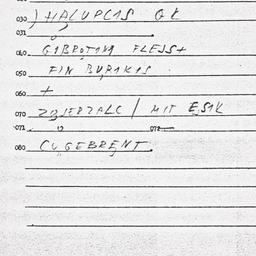 030 ) HALUPCIS GK
031
040 GIBROTINI FLEJS+
050 FIN BURIKIS
060 +
070 ZBIERZALC / MIT ESIK
071 072
080 CUGEBRENT